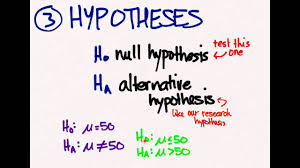 ③ HYPOTHESES
H₀ null hypothesis ← test this one
Hᴀ alternative hypothesis
like our research hypothesis
H₀: μ=50
Hᴀ: μ≠50
H₀: μ≤50
Hᴀ: μ>50